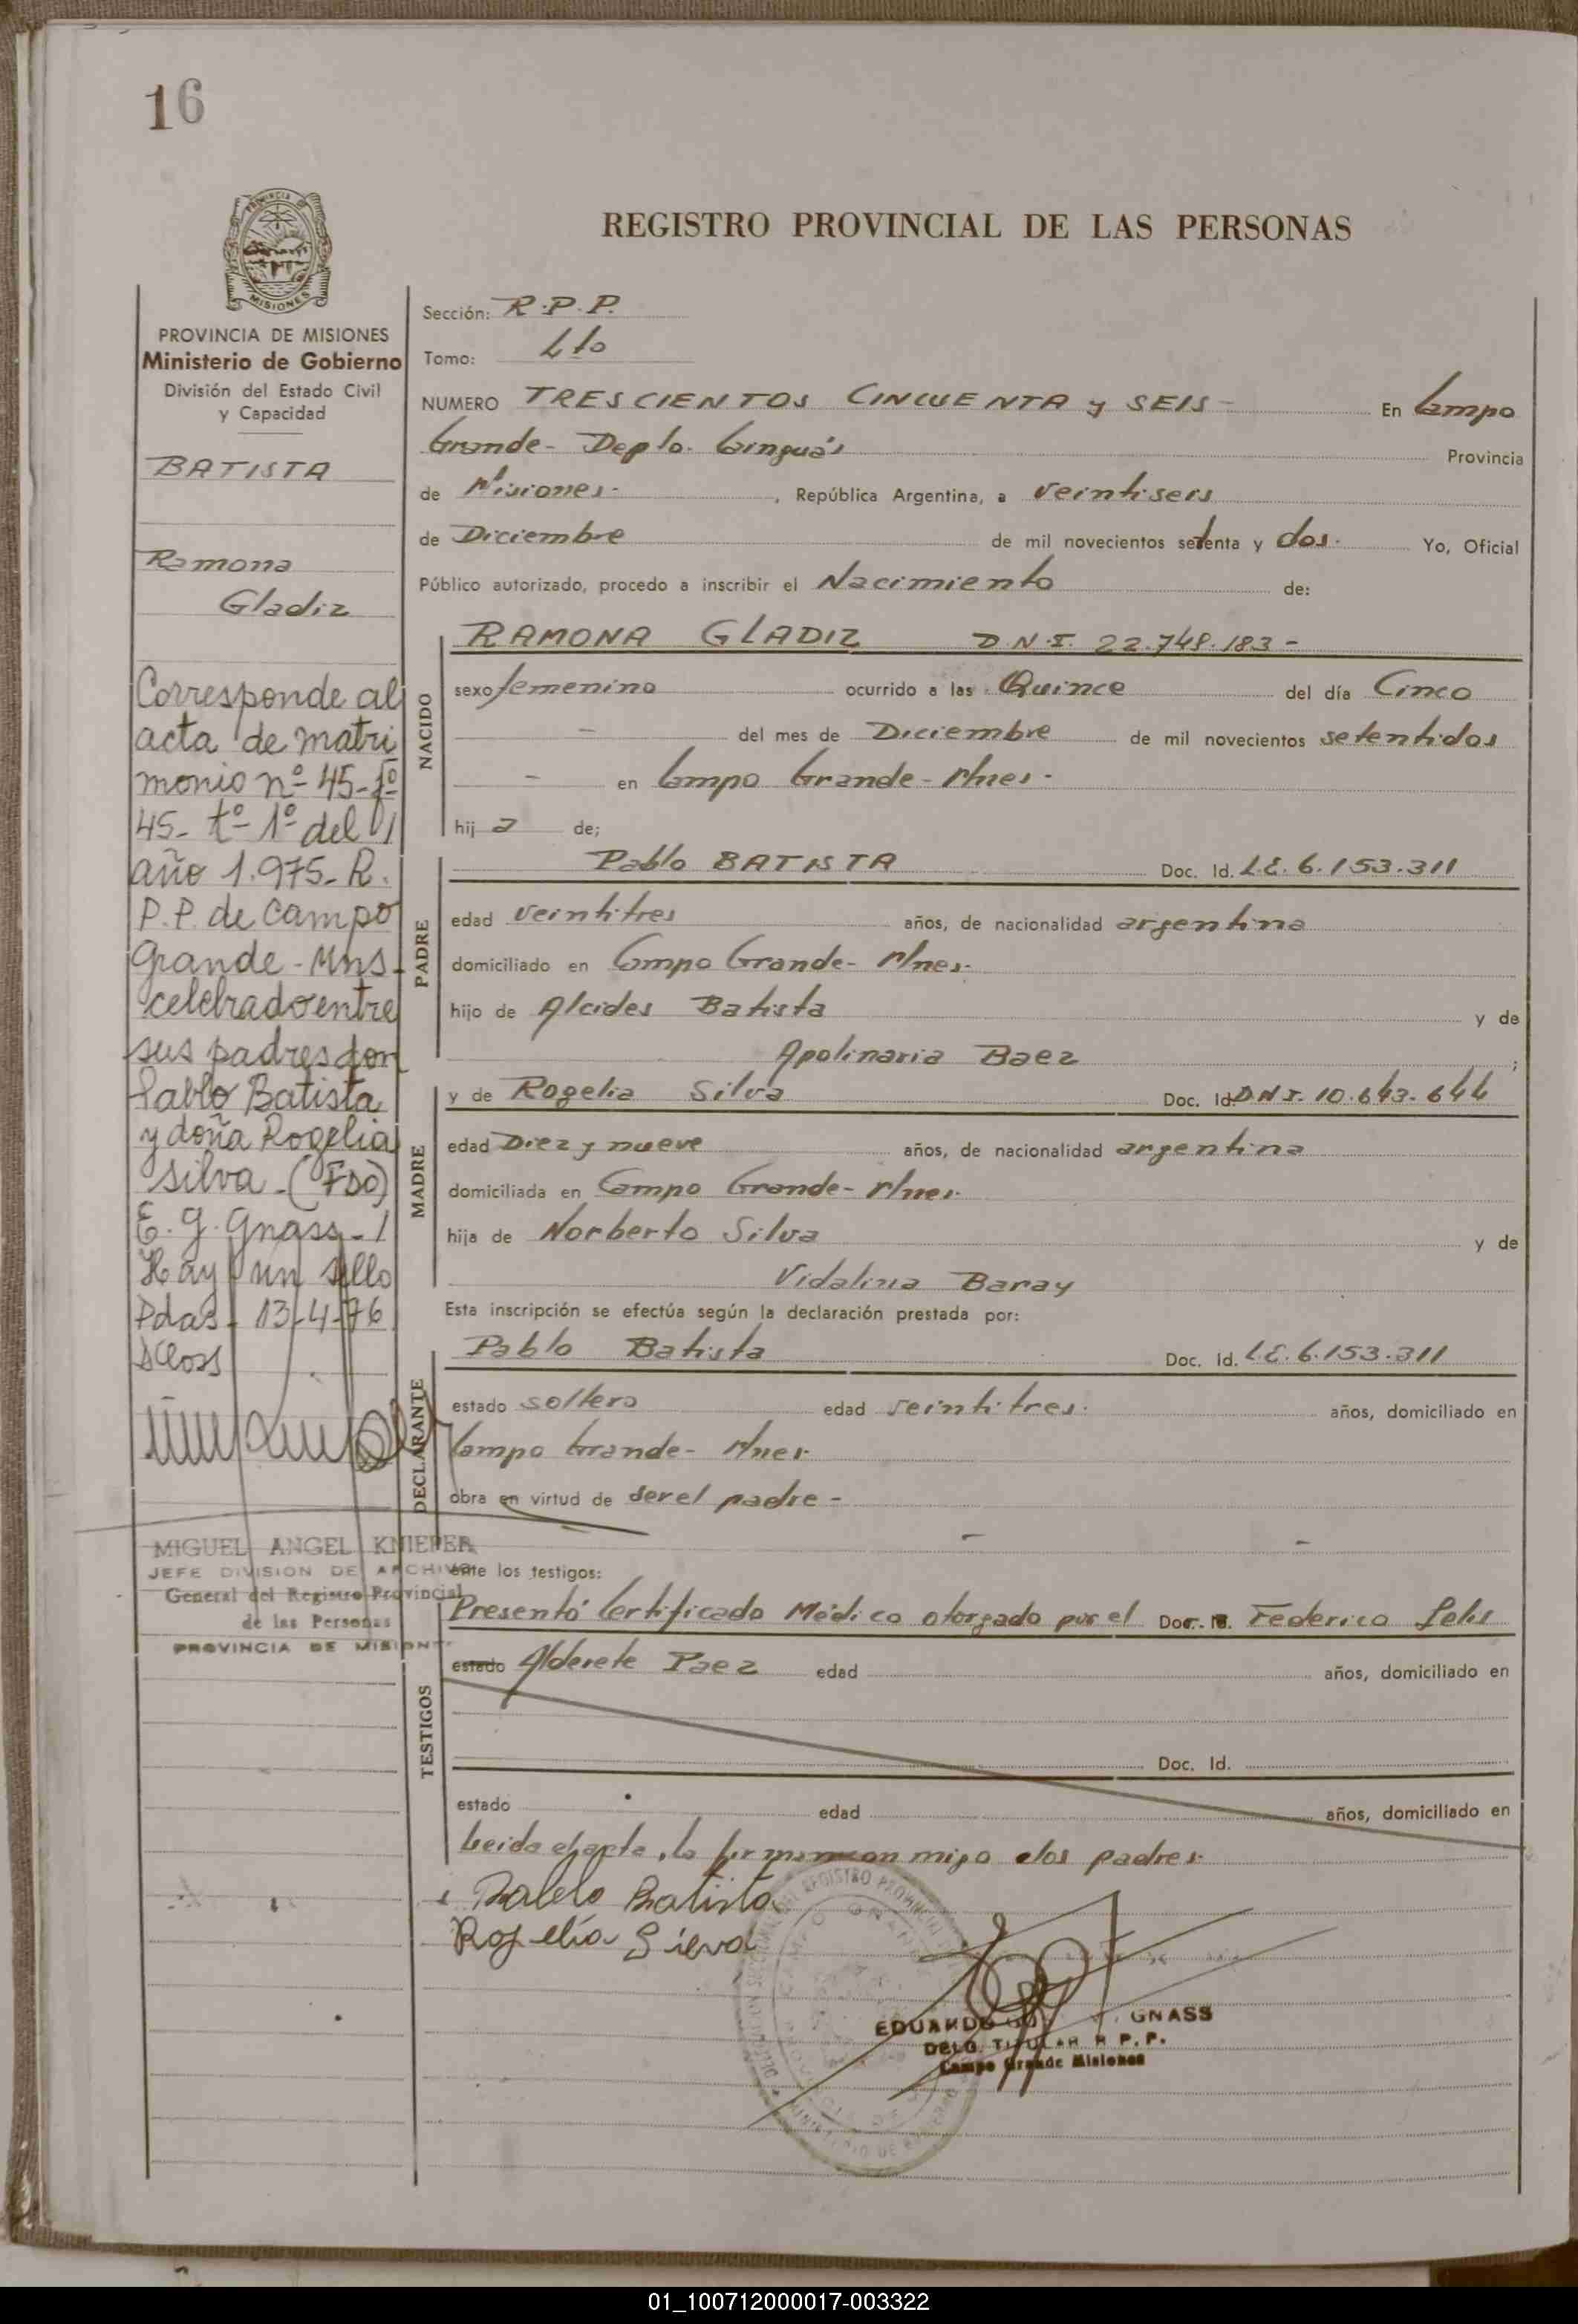 16
PROVINCIA
MISIONES
PROVINCIA DE MISIONES
Ministerio de Gobierno
División del Estado Civil
y Capacidad
BATISTA
Ramona
Gladiz
Corresponde al
acta de matri
monio nº 45-fº
45- tº 1º del
año 1.975- R.
P.P. de Campo
Grande - Mns-
celebrado entre
sus padres don
Pablo Batista
y doña Rogelia
Silva - (FDO)
E. G. Gnass -
Hay un sello
Pdas- 13-4-76
MIGUEL ANGEL KNIEPER
JEFE DIVISION DE ARCHIVO
General del Registro Provincial
de las Personas
PROVINCIA DE MISIONES
REGISTRO PROVINCIAL DE LAS PERSONAS
Sección: R.P.P.
Tomo: 4to
NUMERO TRESCIENTOS CINCUENTA y SEIS - En Campo
Grande - Depto. Cainguás Provincia
de Misiones - , República Argentina, a veintiseis
de Diciembre de mil novecientos setenta y dos. Yo, Oficial
Público autorizado, procedo a inscribir el Nacimiento de:
RAMONA GLADIZ D.N.I. 22.748.183 -
NACIDO
sexo femenino ocurrido a las Quince del día Cinco
- del mes de Diciembre de mil novecientos setentidos
- en Campo Grande - Mnes -
hij a de;
Pablo BATISTA Doc. Id. L.E. 6.153.311
PADRE
edad veintitres años, de nacionalidad argentina
domiciliado en Campo Grande - Mnes -
hijo de Alcides Batista y de
Apolinaria Baez ;
y de Rogelia Silva Doc. Id. D.N.I. 10.643.644
MADRE
edad Diez y nueve años, de nacionalidad argentina
domiciliada en Campo Grande - Mnes -
hija de Norberto Silva y de
Vidalina Baray
Esta inscripción se efectúa según la declaración prestada por:
Pablo Batista Doc. Id. L.E. 6.153.311
DECLARANTE
estado soltero edad veintitres. años, domiciliado en
Campo Grande - Mnes
obra en virtud de ser el padre -
- -
ente los testigos:
Presentó Certificado Médico otorgado por el Doc. Federico
estado Alderete Paez edad años, domiciliado en
TESTIGOS
Doc. Id.
estado edad años, domiciliado en
Leida el acta, la firman con migo los padres
Pablo Batista
Rogelia Silva
EDUARDO GNASS
DELG. TITULAR R.P.P.
Campo Grande Misiones
01_100712000017-003322